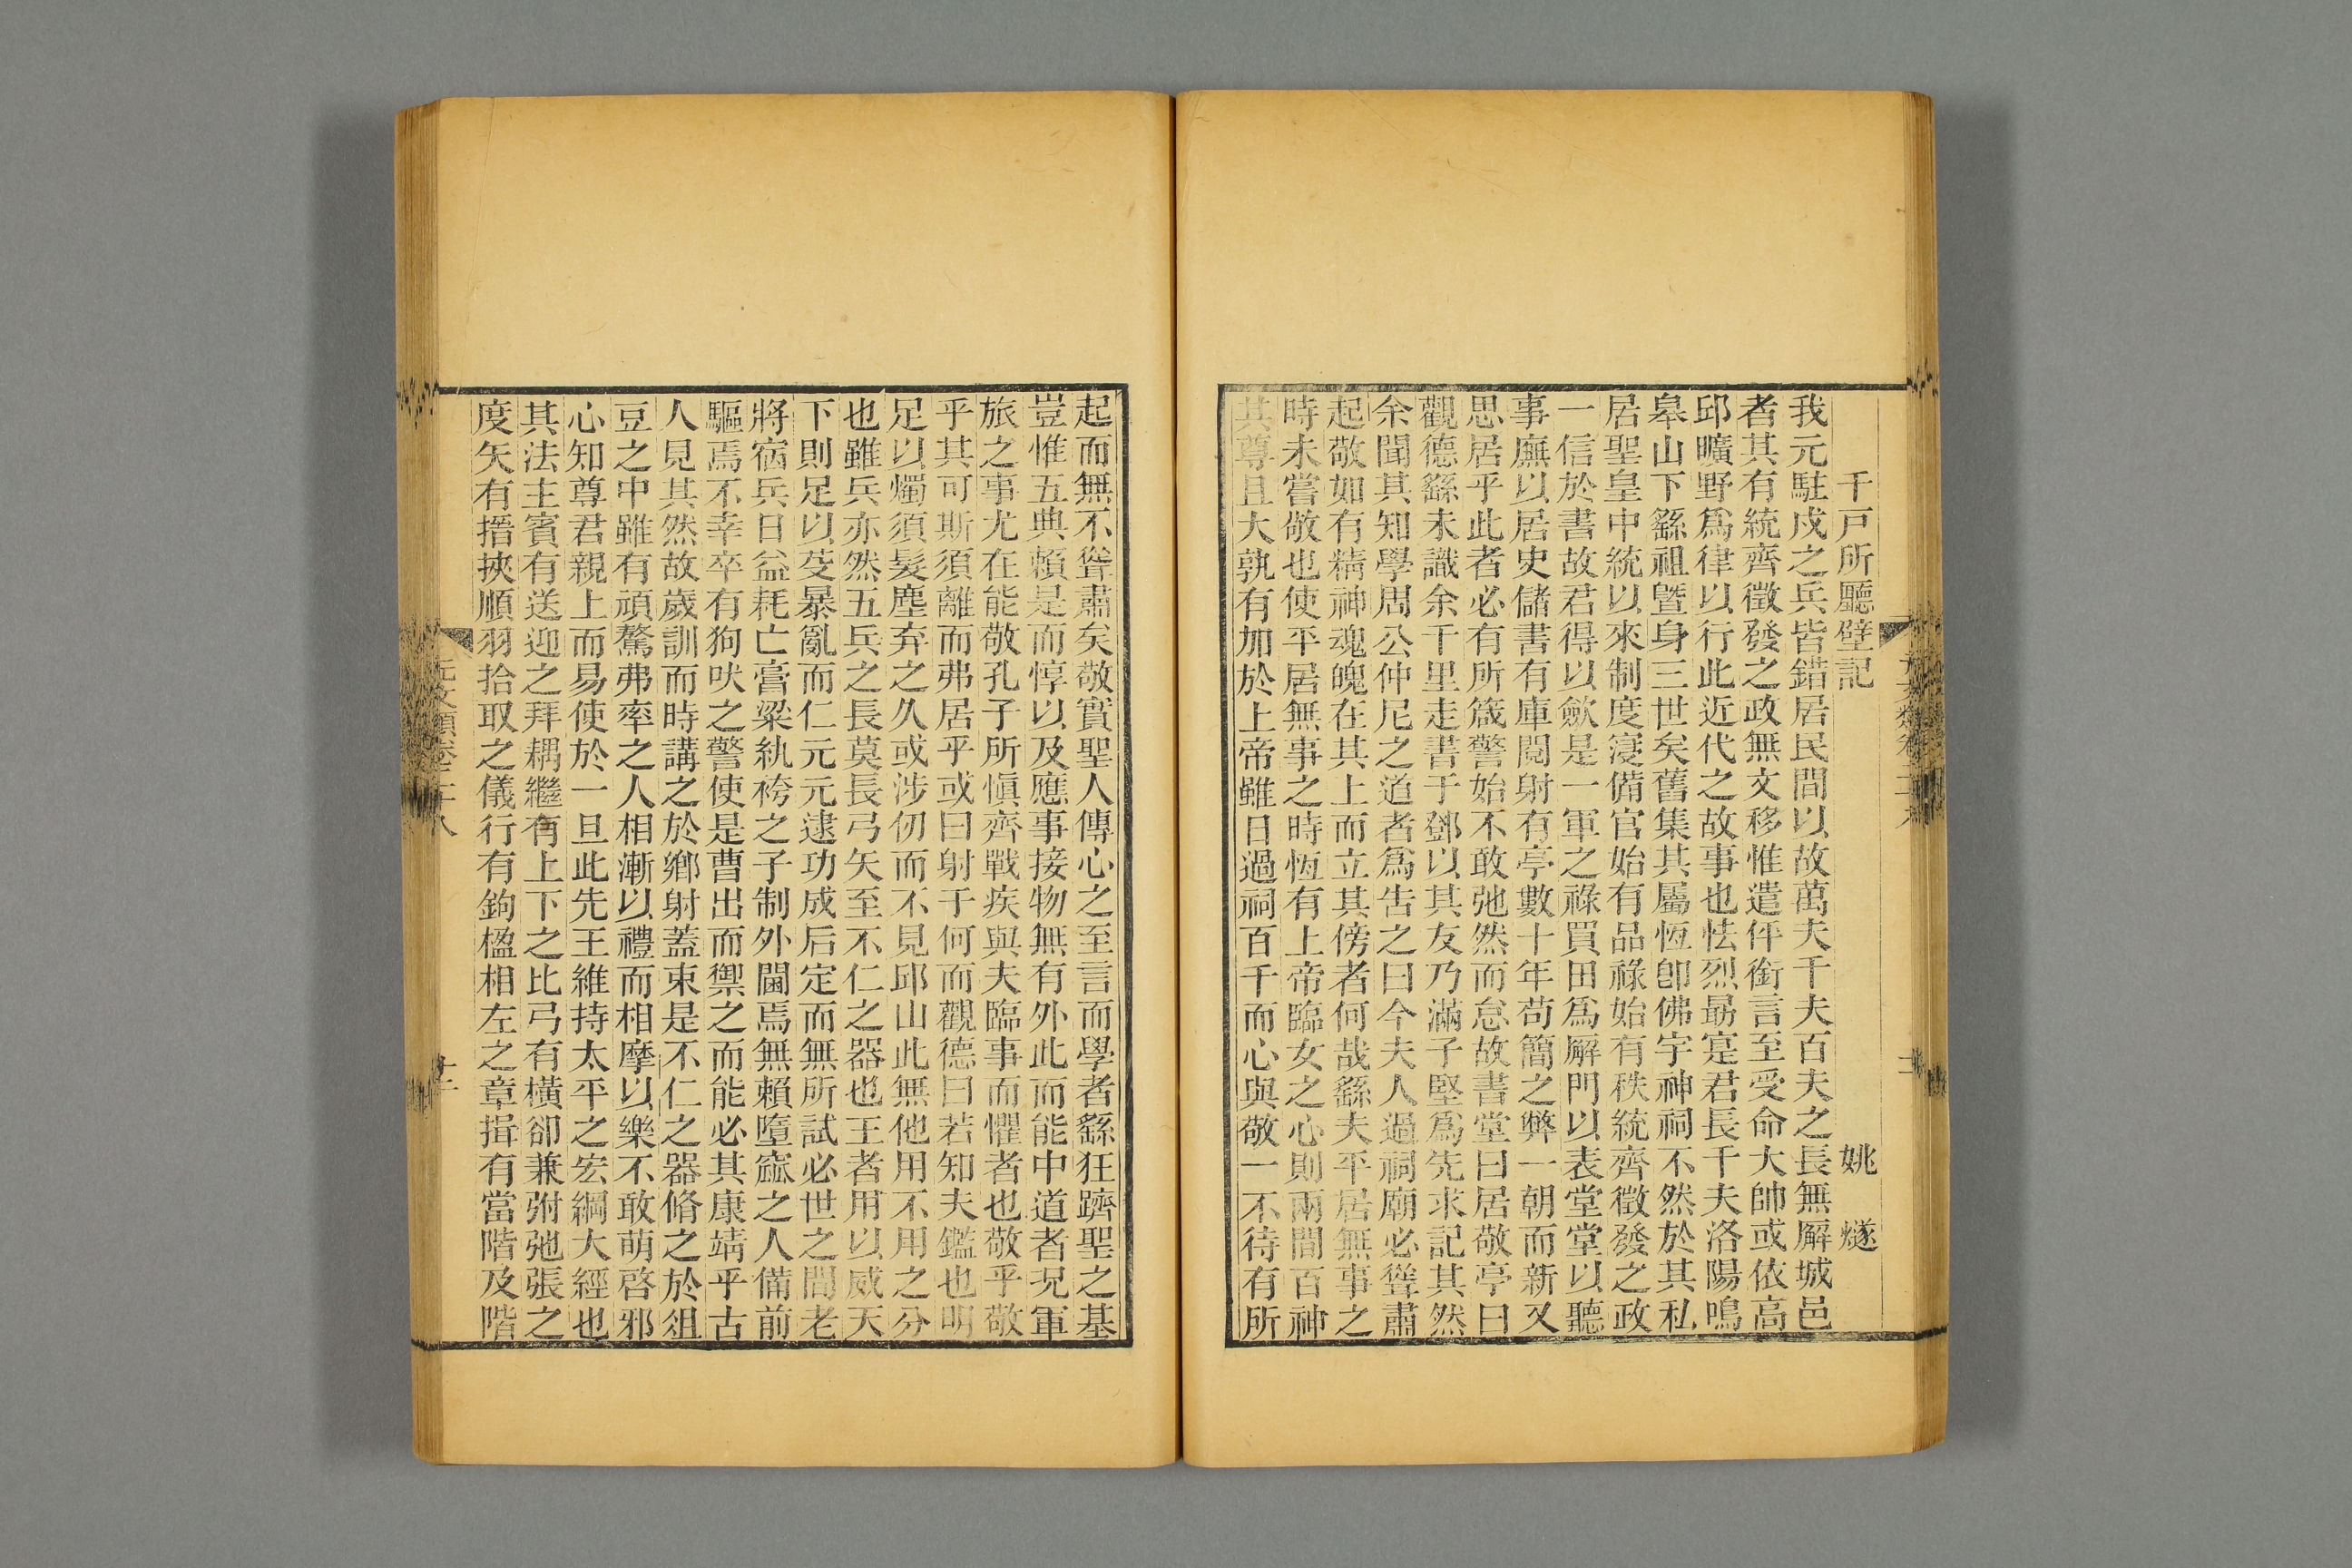 千戸所廳壁記　姚　燧
我元駐戍之兵皆錯居民間以故萬夫千夫百夫之長無廨城邑
者其有統齊徵發之政無文移惟遣伻銜言至受命大帥或依高
邱曠野爲律以行此近代之故事也怯烈㝡寔君長千夫洛陽鳴
皋山下繇祖曁身三世矣舊集其屬恆卽佛宇神祠不然於其私
居聖皇中統以來制度寖備官始有品祿始有秩統齊徵發之政
一信於書故君得以歛是一軍之祿買田爲廨門以表堂堂以聽
事廡以居史儲書有庫閱射有亭數十年苟簡之弊一朝而新又
思居乎此者必有所箴警始不敢弛然而怠故書堂曰居敬亭曰
觀德繇未識余千里走書于鄧以其友乃滿子堅爲先求記其然
余聞其知學周公仲尼之道者爲吿之曰今夫人過祠廟必聳肅
起敬如有精神魂魄在其上而立其傍者何哉繇夫平居無事之
時未嘗敬也使平居無事之時恆有上帝臨女之心則兩間百神
其尊且大孰有加於上帝雖日過祠百千而心與敬一不待有所
起而無不聳肅矣敬實聖人傳心之至言而學者繇狂躋聖之基
豈惟五典頼是而惇以及應事接物無有外此而能中道者况軍
旅之事尤在能敬孔子所愼齊戰疾與夫臨事而懼者也敬乎敬
乎其可斯須離而弗居乎或曰射于何而觀德曰若知夫鑑也明
足以燭須髮塵弃之久或涉仞而不見邱山此無他用不用之分
也雖兵亦然五兵之長莫長弓矢至不仁之器也王者用以威天
下則足以芟暴亂而仁元元逮功成后定而無所試必世之間老
將宿兵日益耗亡膏粱紈袴之子制外閫焉無賴墮窳之人備前
驅焉不幸卒有狗吠之警使是曹出而禦之而能必其康靖乎古
人見其然故歲訓而時講之於鄕射蓋束是不仁之器脩之於俎
豆之中雖有頑驁弗率之人相漸以禮而相摩以樂不敢萌啓邪
心知尊君親上而易使於一旦此先王維持太平之宏綱大經也
其法主賓有送迎之拜耦繼有上下之比弓有橫卻兼弣弛張之
度矢有搢挾順羽拾取之儀行有鉤楹相左之章揖有當階及階
元文類卷二十八
十二